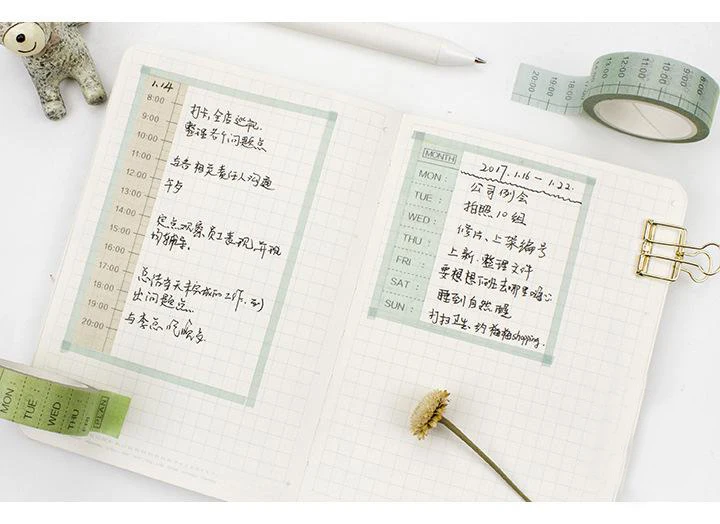 1.14
8:00
9:00
10:00
11:00
12:00
13:00
14:00
15:00
16:00
17:00
18:00
19:00
20:00
打卡,全店巡视.
整理各个问题点
与各相关责任人沟通
午歺
定点观察员工表现,并现
场辅导.
总结当天未完成的工作,列
出问题点.
与李总吃晚歺
MONTH
2017.1.16 — 1.22.
MON :
公司例会
TUE :
拍照10组
WED :
修片、上架编号
THU :
上新.整理文件
FRI :
要想想下班去哪里嗨心
SAT :
睡到自然醒
SUN :
打扫卫生.约梅梅shopping.
20:00
19:00
18:00
13:00
12:00
11:00
10:00
9:00
8:00
MON
TUE
WED
THU
PLAN